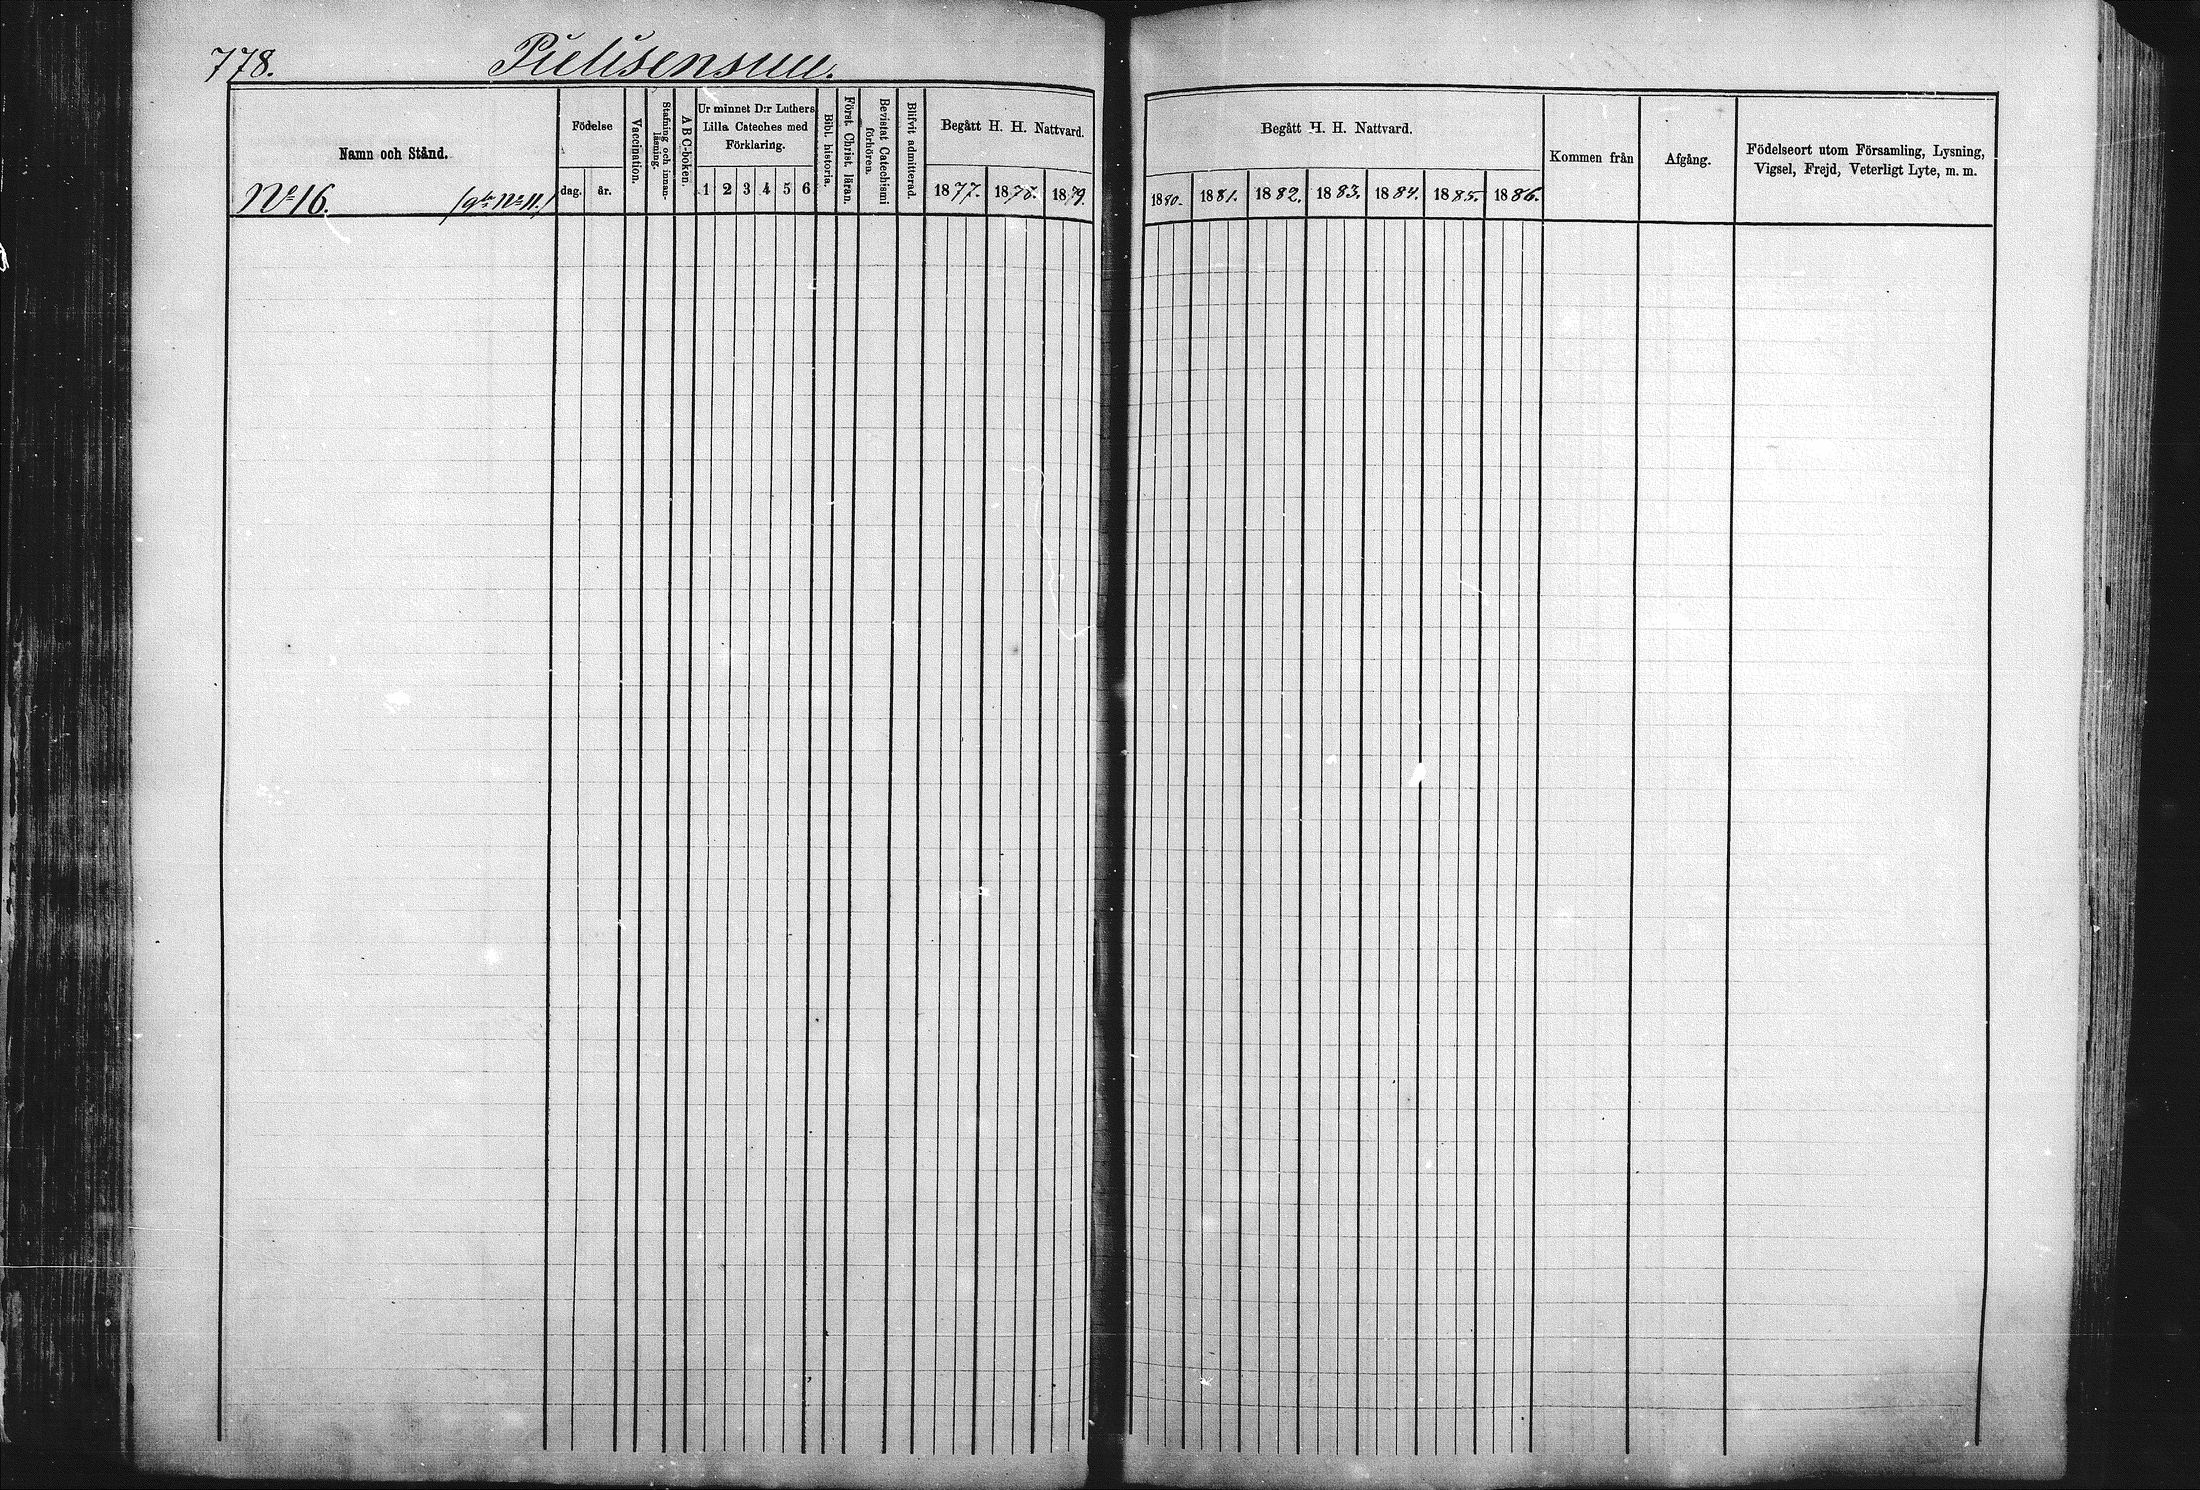 778. Pielisensuu.
Namn och Stånd.
No 16. (gla No 11.)
Födelse
dag. år.
Vaccination.
Stafning och innan-
läsning.
A B C-boken.
Ur minnet D:r Luthers
Lilla Cateches med
Förklaring.
1 2 3 4 5 6
Bibl. historia.
Först. Christ. läran.
Bevistat Catechismi
förhören.
Blifvit admitterad.
Begått H. H. Nattvard.
1877. 1878. 1879.
Begått H. H. Nattvard.
1880. 1881. 1882. 1883. 1884. 1885. 1886.
Kommen från
Afgång.
Födelseort utom Församling, Lysning,
Vigsel, Frejd, Veterligt Lyte, m. m.